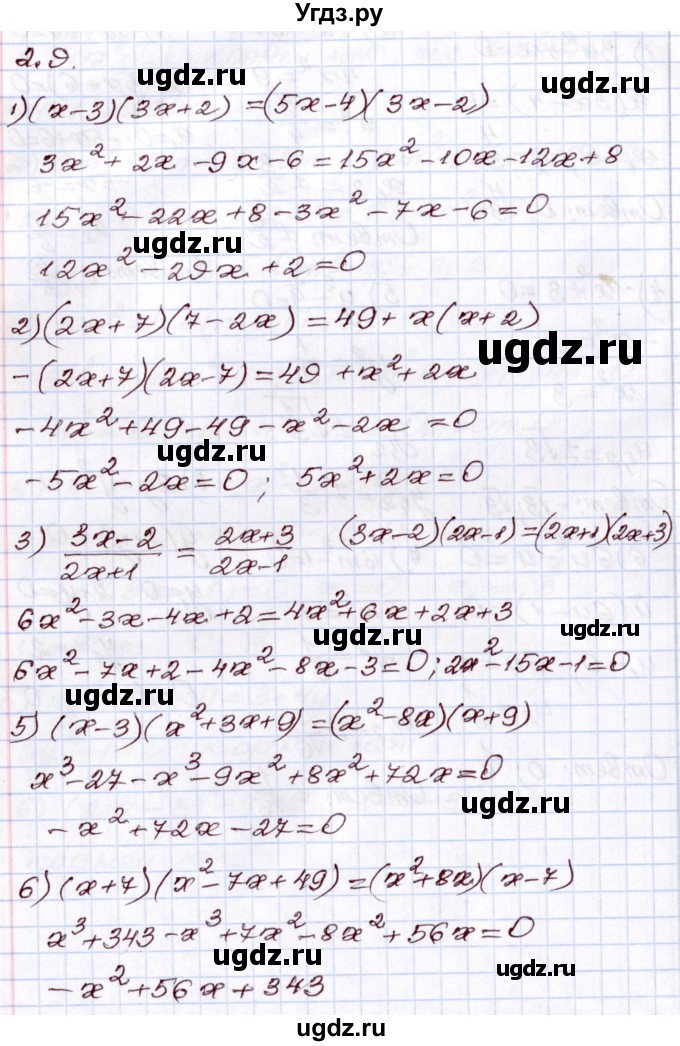 Угдз.ру
2.9.
1) (x-3)(3x+2) = (5x-4)(3x-2)
3x²+2x-9x-6=15x²-10x-12x+8
15x²-22x+8-3x²-7x-6=0
12x²-29x+2=0
2) (2x+7)(7-2x)=49+x(x+2)
-(2x+7)(2x-7)=49+x²+2x
-4x²+49-49-x²-2x=0
-5x²-2x=0; 5x²+2x=0
3) (3x-2)/(2x+1) = (2x+3)/(2x-1) (3x-2)(2x-1)=(2x+1)(2x+3)
6x²-3x-4x+2=4x²+6x+2x+3
6x²-7x+2-4x²-8x-3=0; 2x²-15x-1=0
5) (x-3)(x²+3x+9)=(x²-8x)(x+9)
x³-27-x³-9x²+8x²+72x=0
-x²+72x-27=0
6) (x+7)(x²-7x+49)=(x²+8x)(x-7)
x³+343-x³+7x²-8x²+56x=0
-x²+56x+343
ugdz.ru